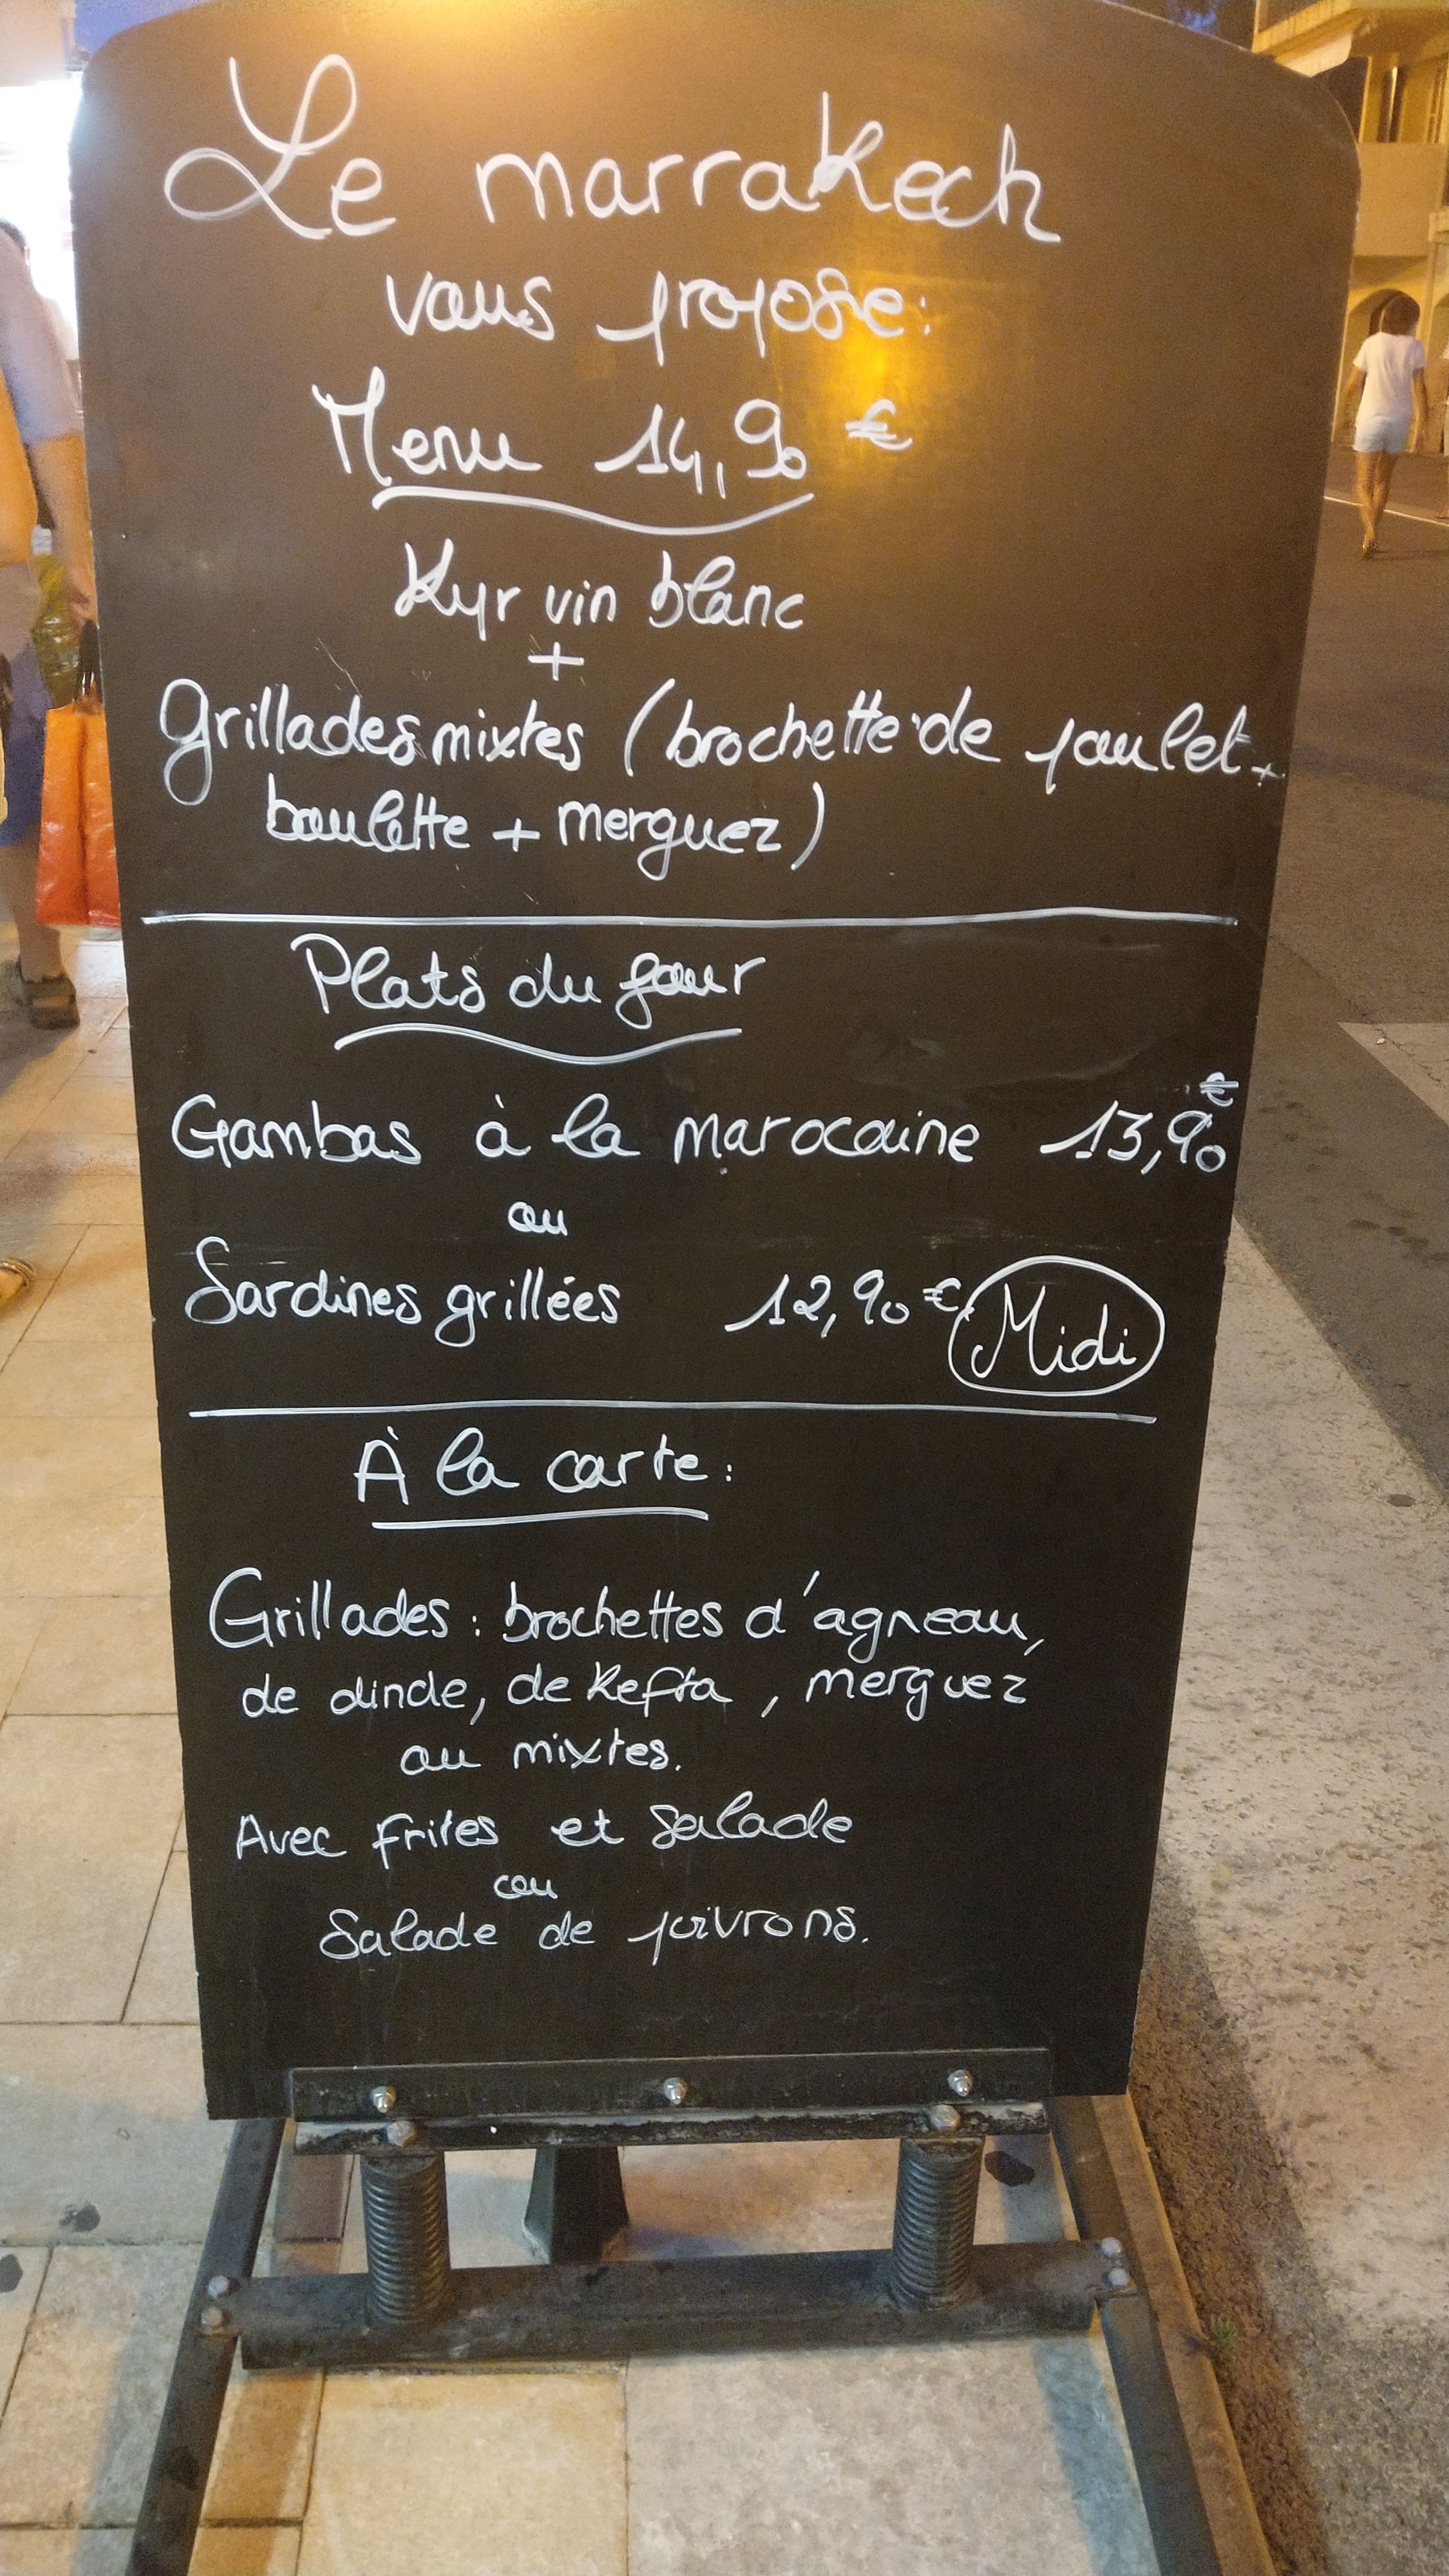 Le marrakech
vous propose:
Menu 14,90 €
Kyr vin blanc
+
Grillades mixtes (brochette de poulet +
boulette + merguez)
Plats du jour
Gambas à la marocaine 13,90 €
ou
Sardines grillées 12,90 € Midi
À la carte:
Grillades : brochettes d'agneau,
de dinde, de Kefta, merguez
ou mixtes.
Avec frites et salade
ou
Salade de poivrons.